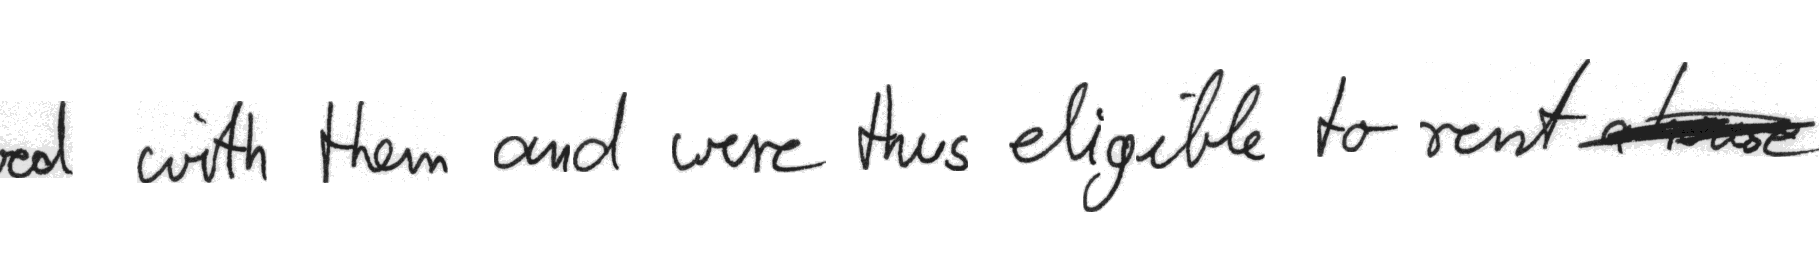 with them and were thus eligible to rent